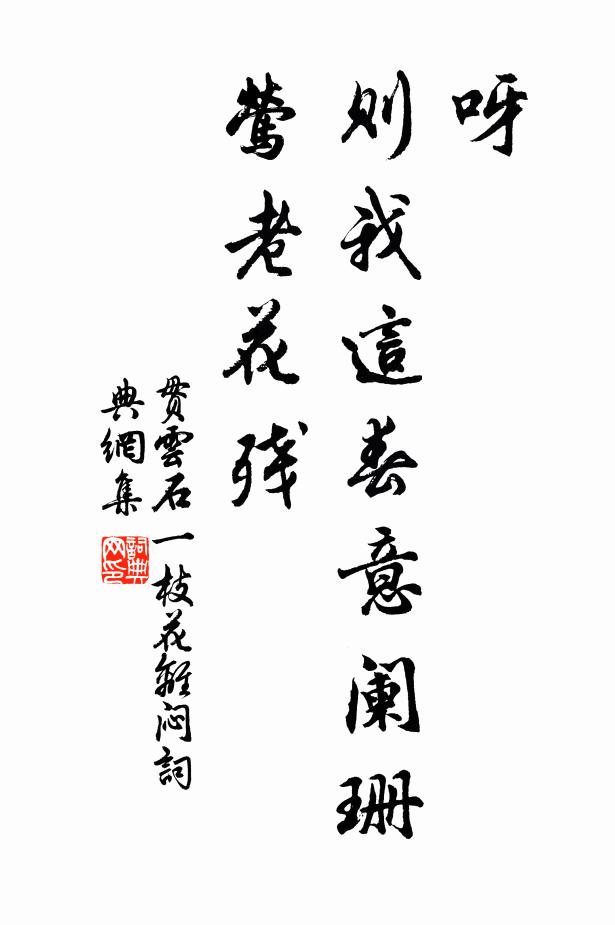 呀
则我這春意阑珊
莺老花残
贯雲石一枝花離闷詞
典網集
詞典
网印